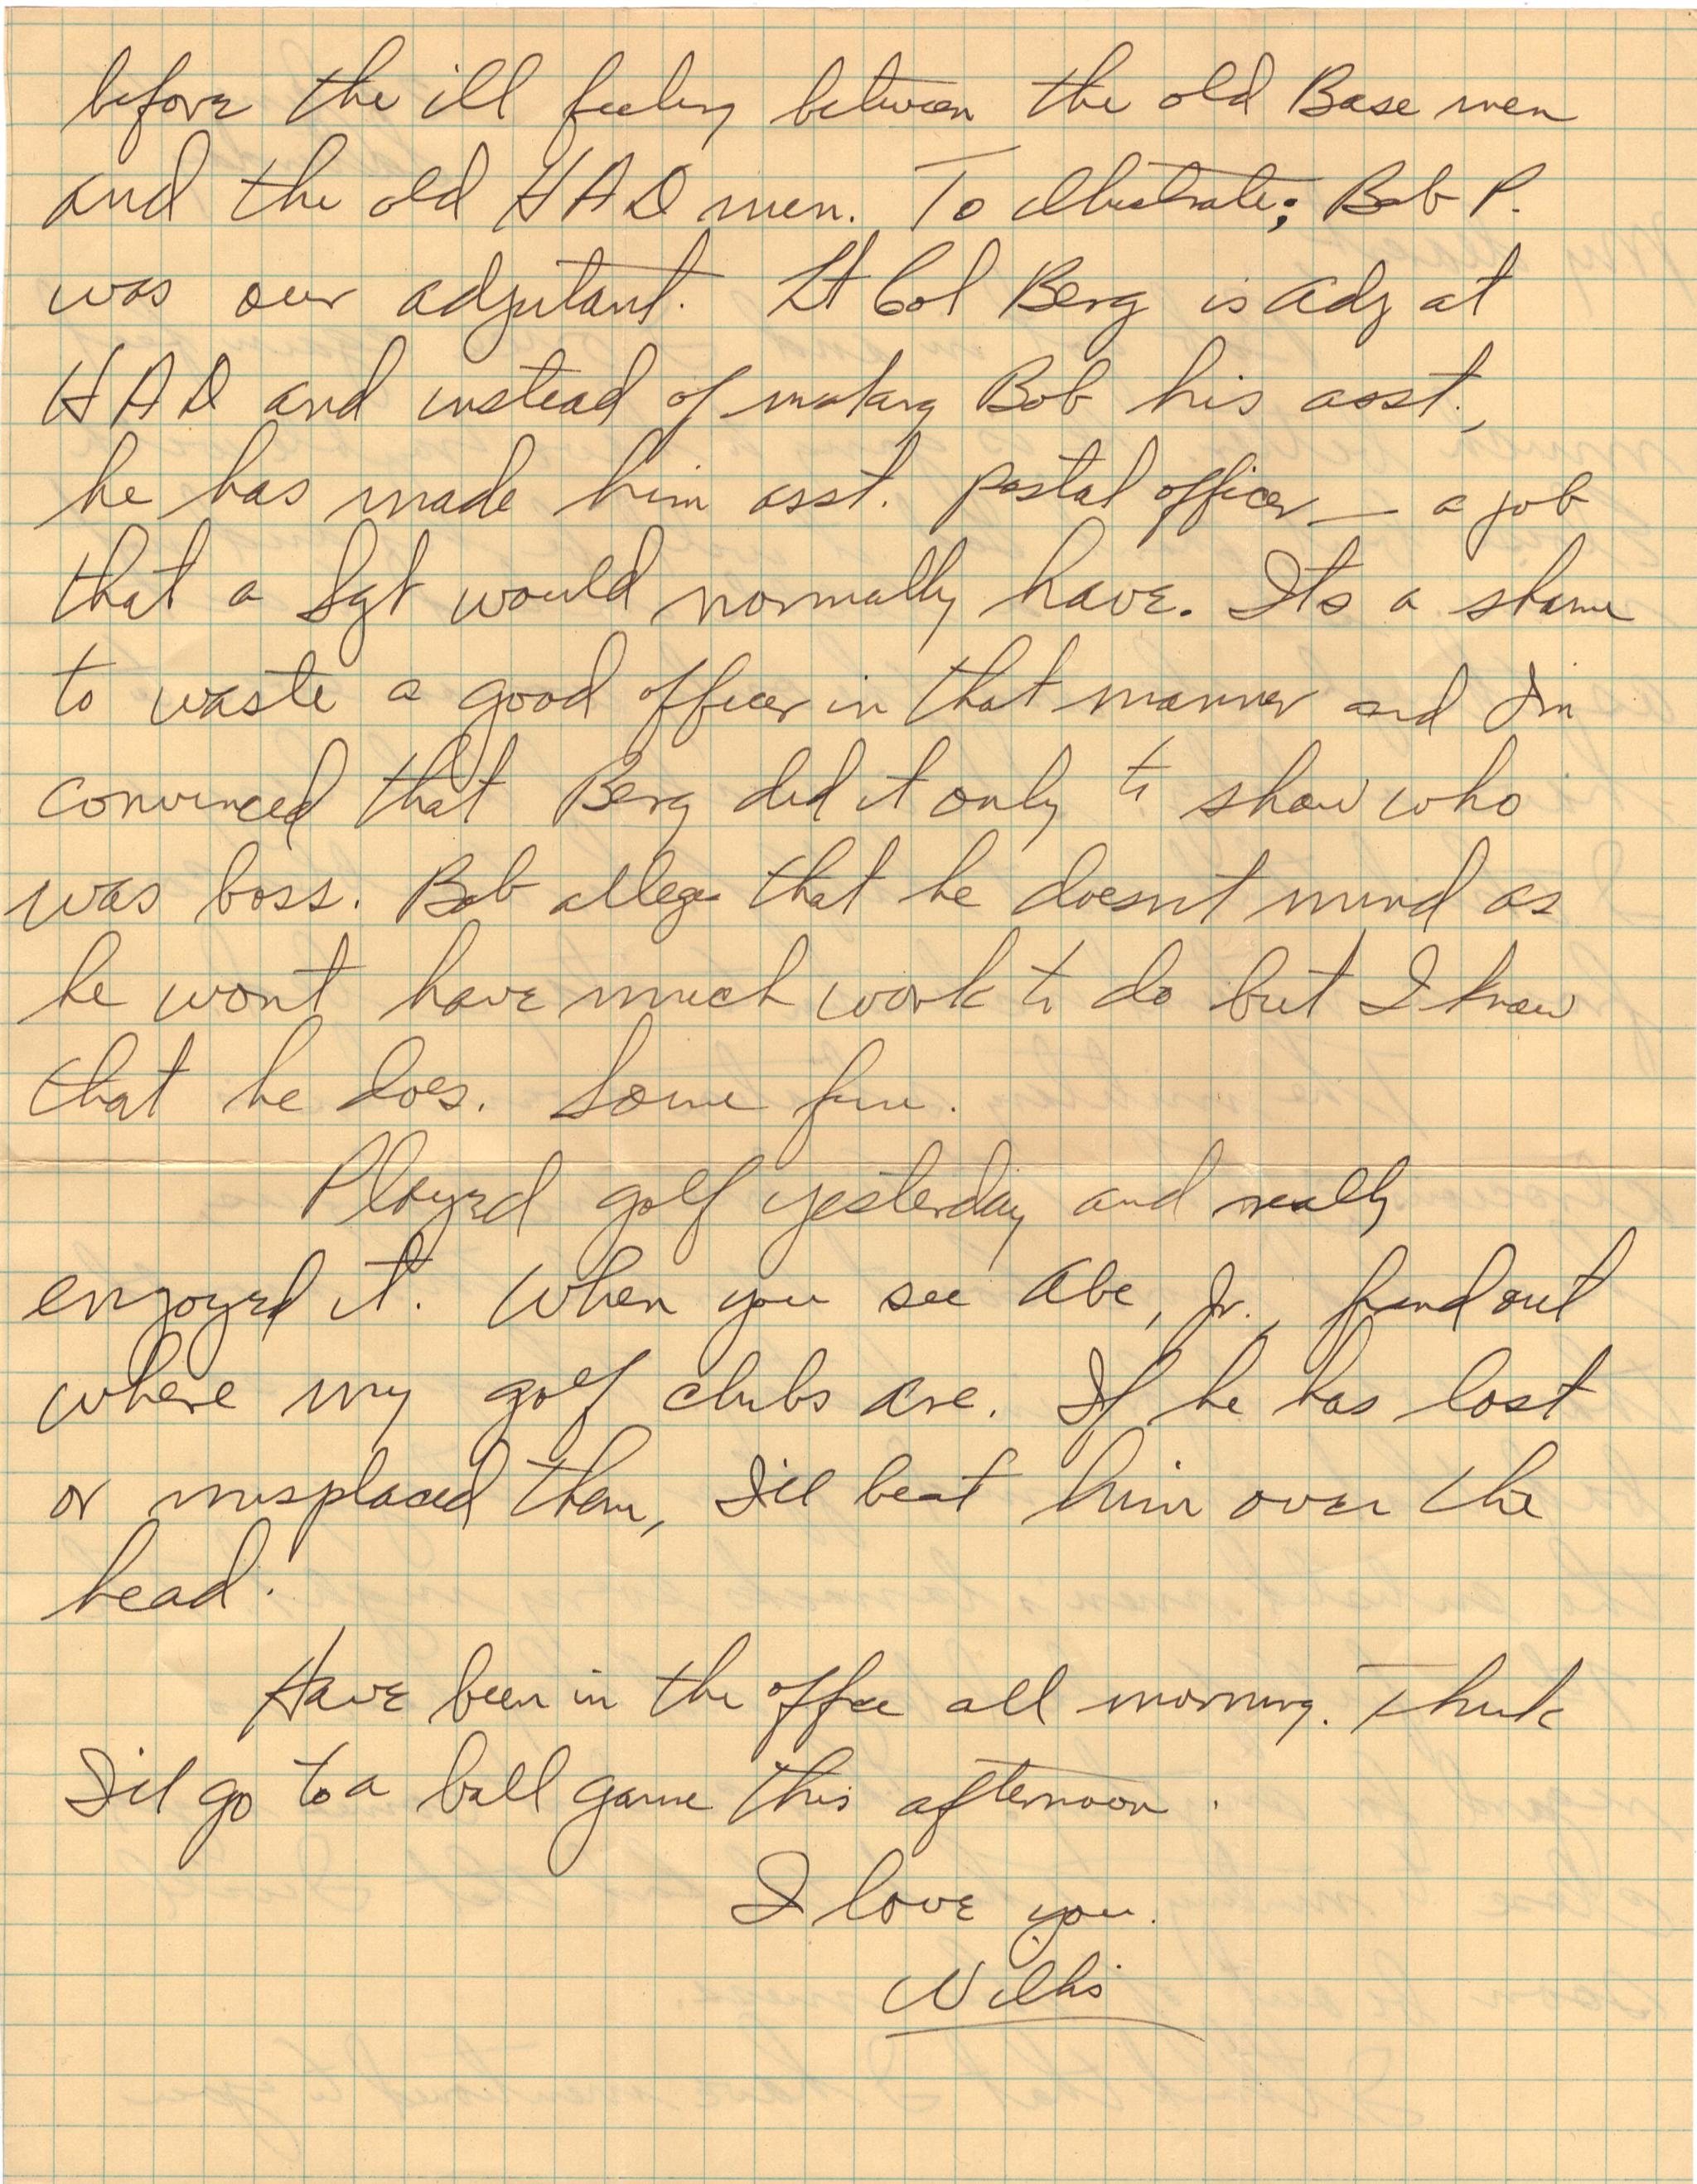 before the ill feeling between the old Base men
and the old HAD men. To illustrate; Bob P.
was our adjutant. Lt Col Berg is adj at
HAD and instead of making Bob his asst.,
he has made him asst. postal officer — a job
that a Sgt would normally have. Its a shame
to waste a good officer in that manner and Im
convinced that Berg did it only to show who
was boss. Bob alleges that he doesnt mind as
he wont have much work to do but I know
that he does. Some fun.
Played golf yesterday and really
enjoyed it. When you see Abe, Jr., find out
where my golf clubs are. If he has lost
or misplaced them, I'll beat him over the
head.
Have been in the office all morning. Think
I'll go to a ball game this afternoon.
I love you.
Willis